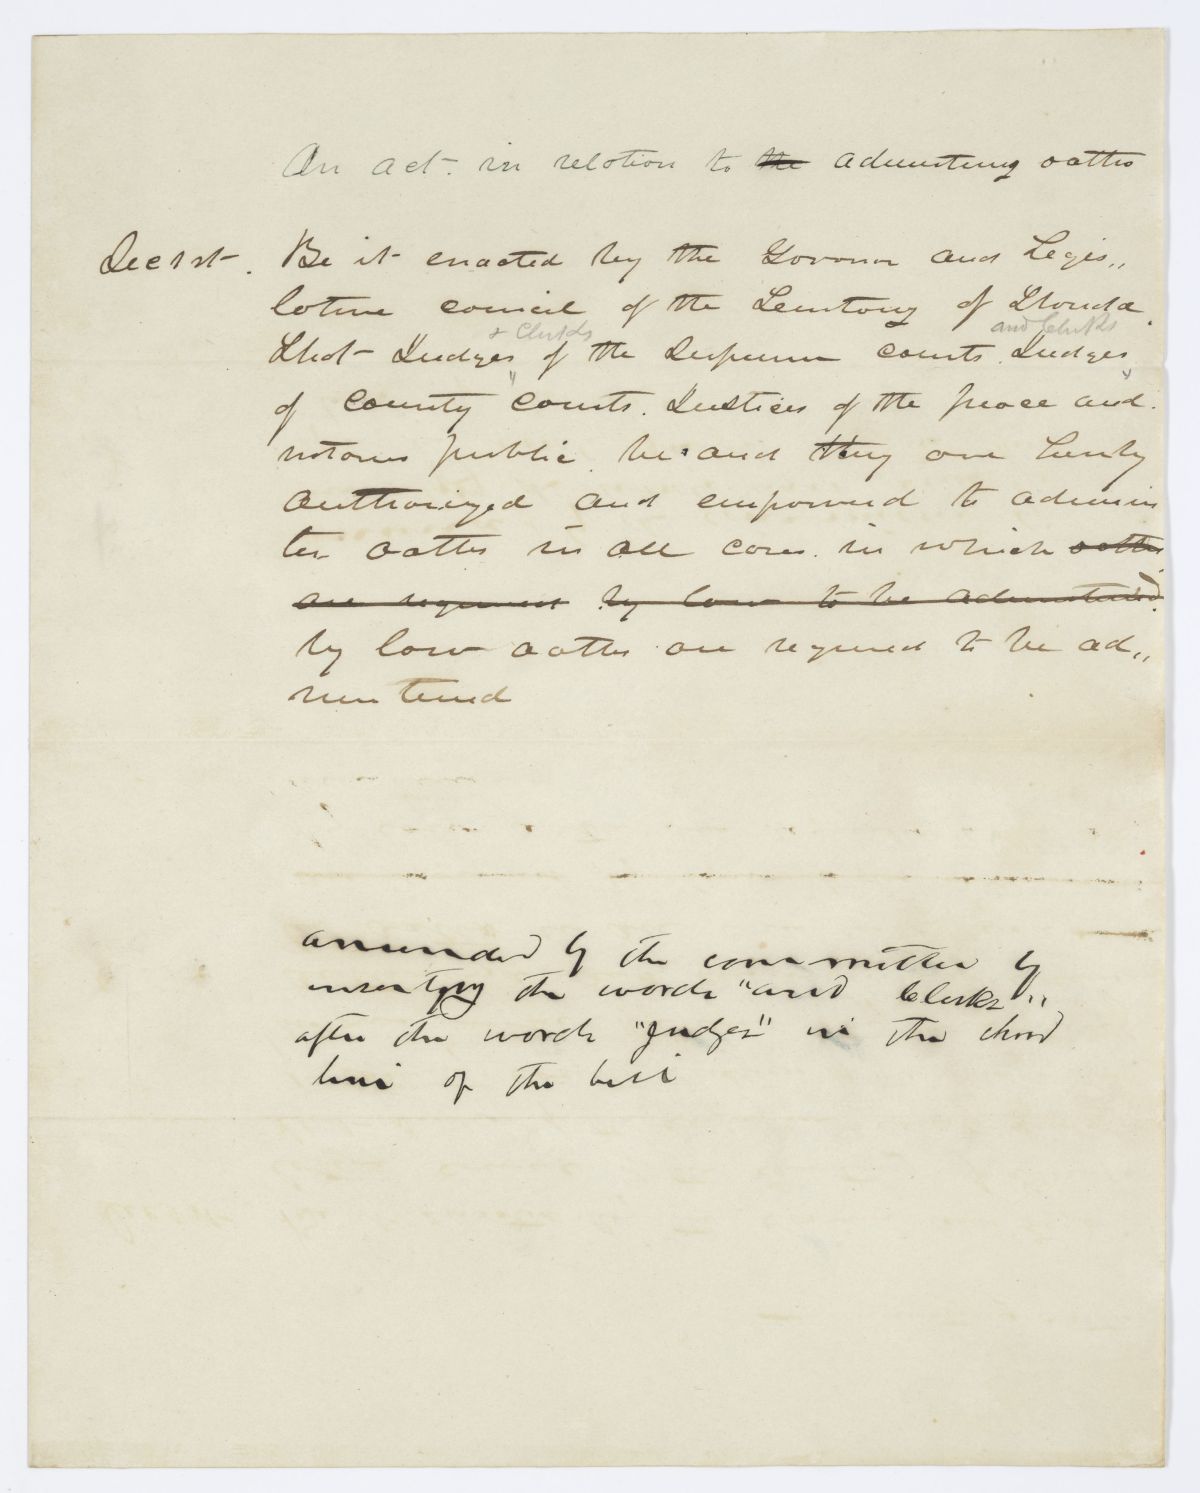 An act in relation to the administering oaths
Sec 1st. Be it enacted by the Governor and Legis,,
lative council of the Territory of Florida.
& Clerks and Clerks
That Judges of the Superior courts. Judges
of County Courts. Justices of the peace and
notaries public. be and they are hereby
authorized and empowered to adminis
ter oathes in all cases. in which oathes
are required by law to be administered.
by law oathes are required to be ad,,
ministered
amended by the committee by
inserting the words "and Clerks,,
after the words "Judges" in the third
line of the bill